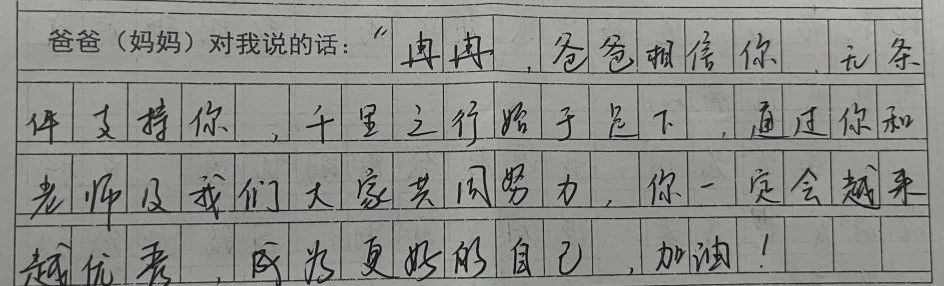 爸爸（妈妈）对我说的话：“冉冉，爸爸相信你，无条
件支持你，千里之行始于足下，通过你和
老师及我们大家共同努力，你一定会越来
越优秀，成为更好的自己，加油！